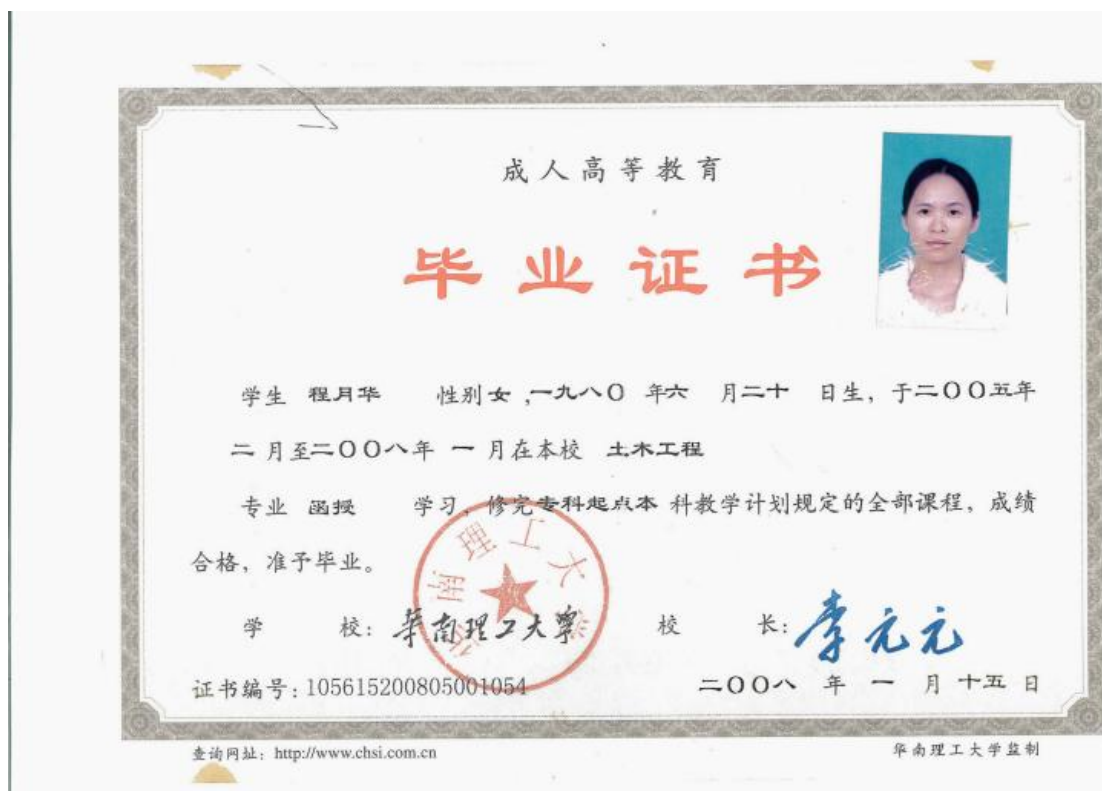 成人高等教育
毕业证书
学生 程月华 性别女,一九八〇 年六 月二十 日生，于二〇〇五年
二 月至二〇〇八年 一 月在本校 土木工程
专业 函授 学习，修完专科起点本 科教学计划规定的全部课程，成绩
合格，准予毕业。
学 校：華南理工大學 校 长：李元元
华南理工大学
证书编号：105615200805001054 二〇〇八 年 一 月 十五 日
查询网址：http://www.chsi.com.cn 华南理工大学监制